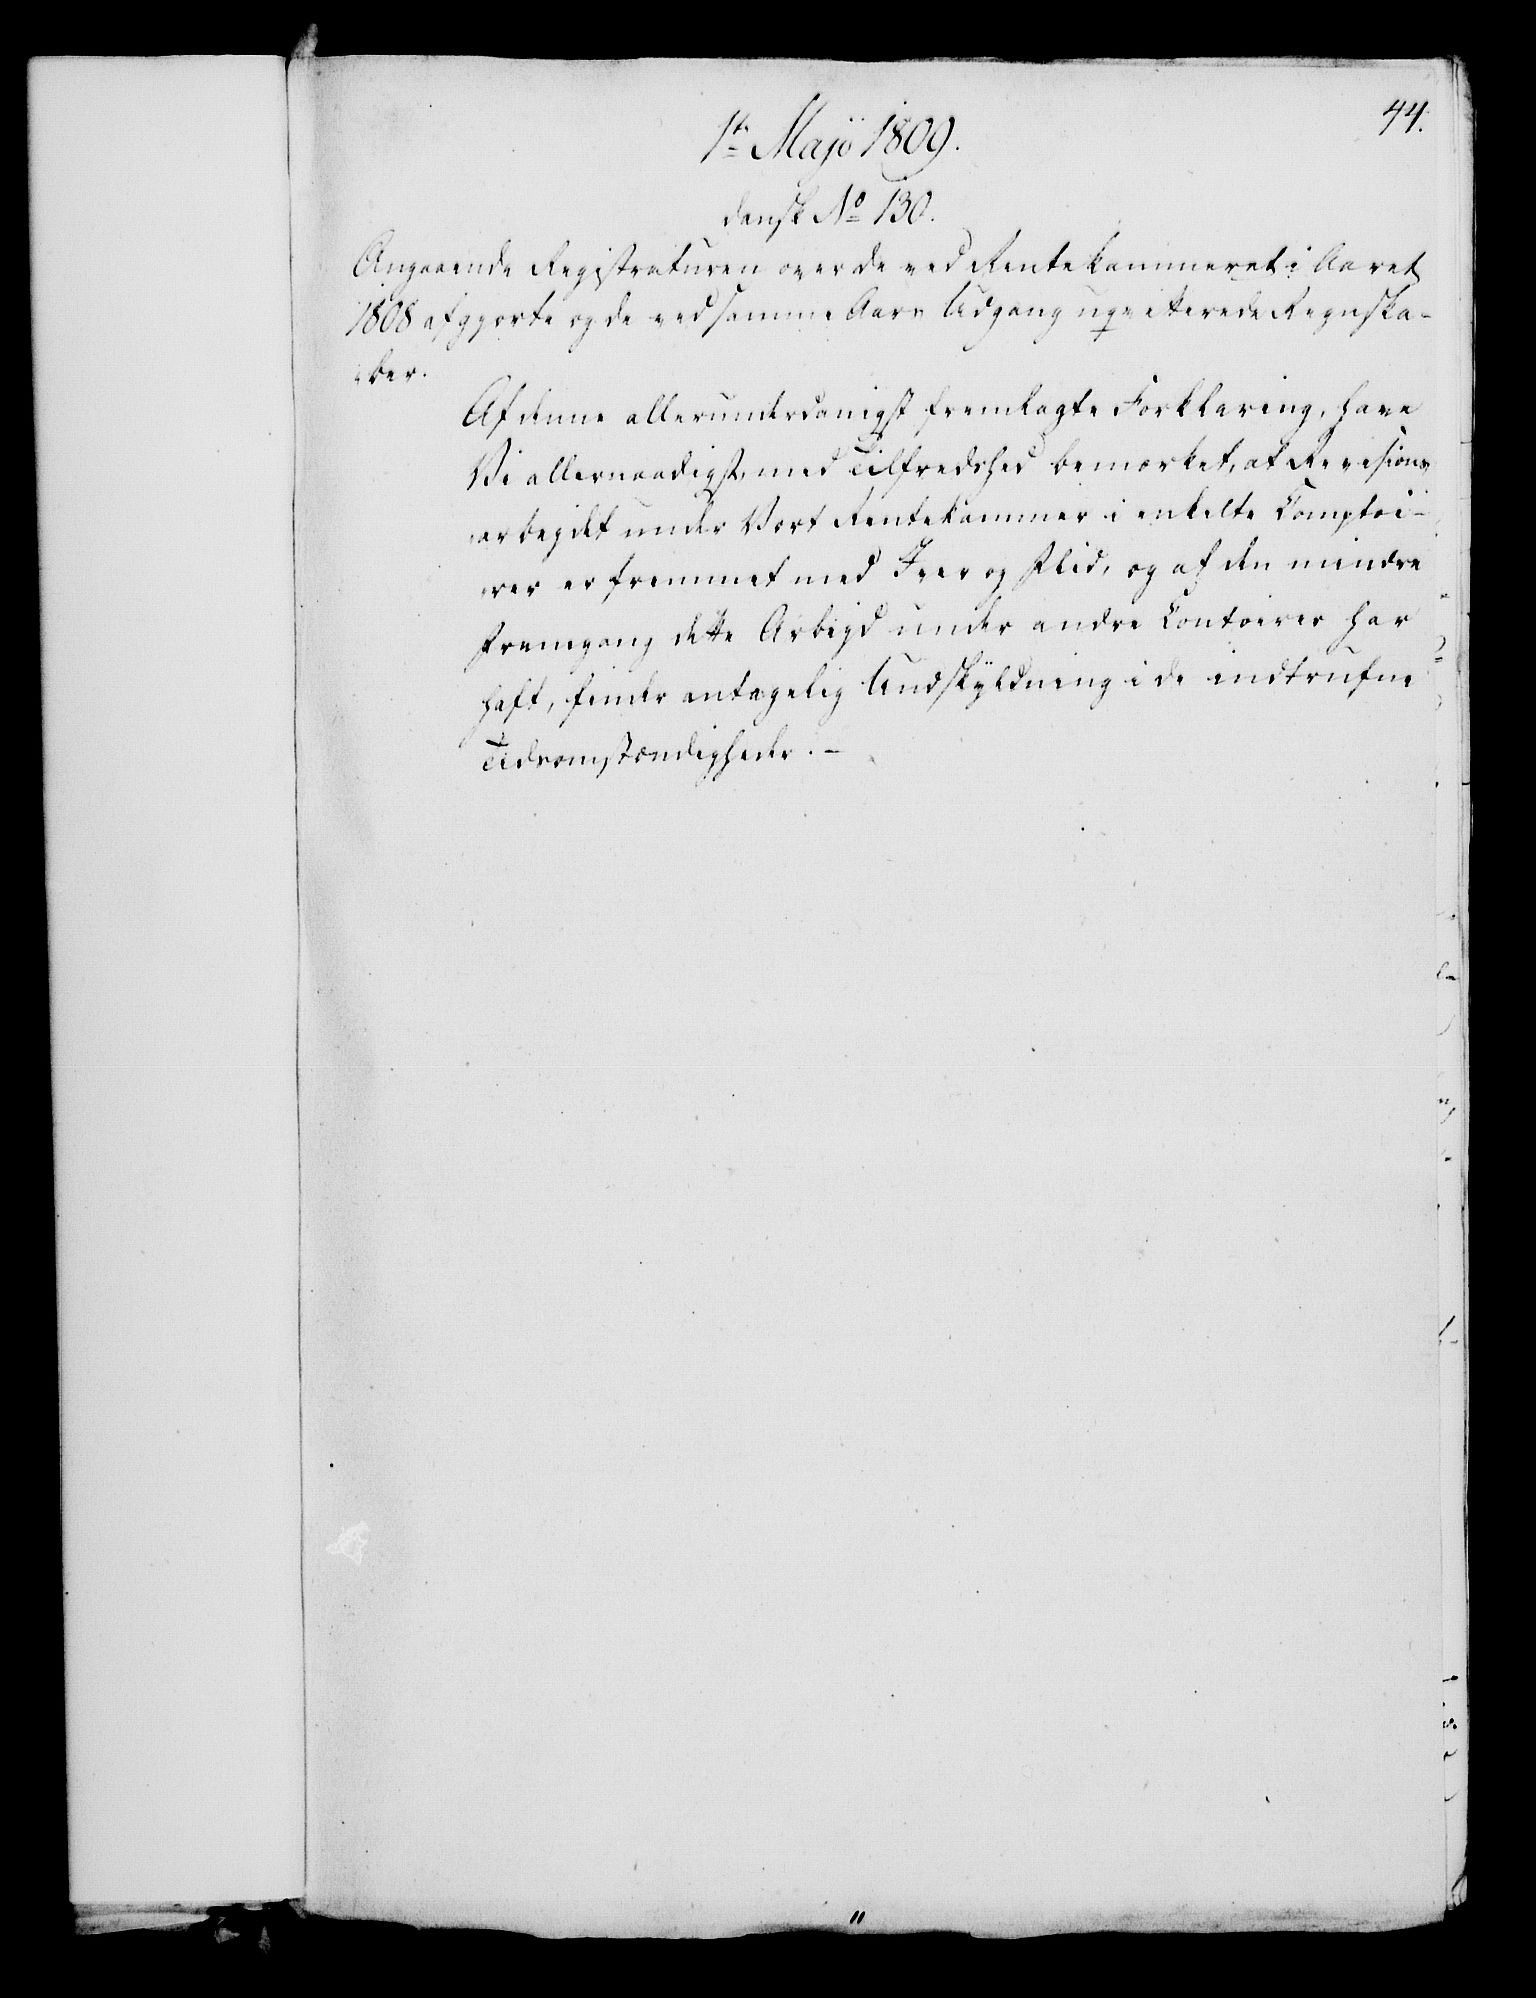 44.
1te Majo 1809.
dansk No 130.
Angaaende Registraturen over de ved Rentekammeret i Aaret
1808 afgjorte og de ved samme Aars Udgang uqvitterede Regnska-
ber.
Af denne allerunderdanigst fremlagte Forklaring, have
Vi allernaadigst, med Tilfredshed bemærket, at Revisions
arbejdet under Vort Rentekammer i enkelte Comptoi-
rer er fremmet med Iver og Flid, og at den mindre
Fremgang dette Arbejd under andre Contoirer har
haft, finder antagelig Undskyldning i de indtrufne
Tidsomstændigheder. -